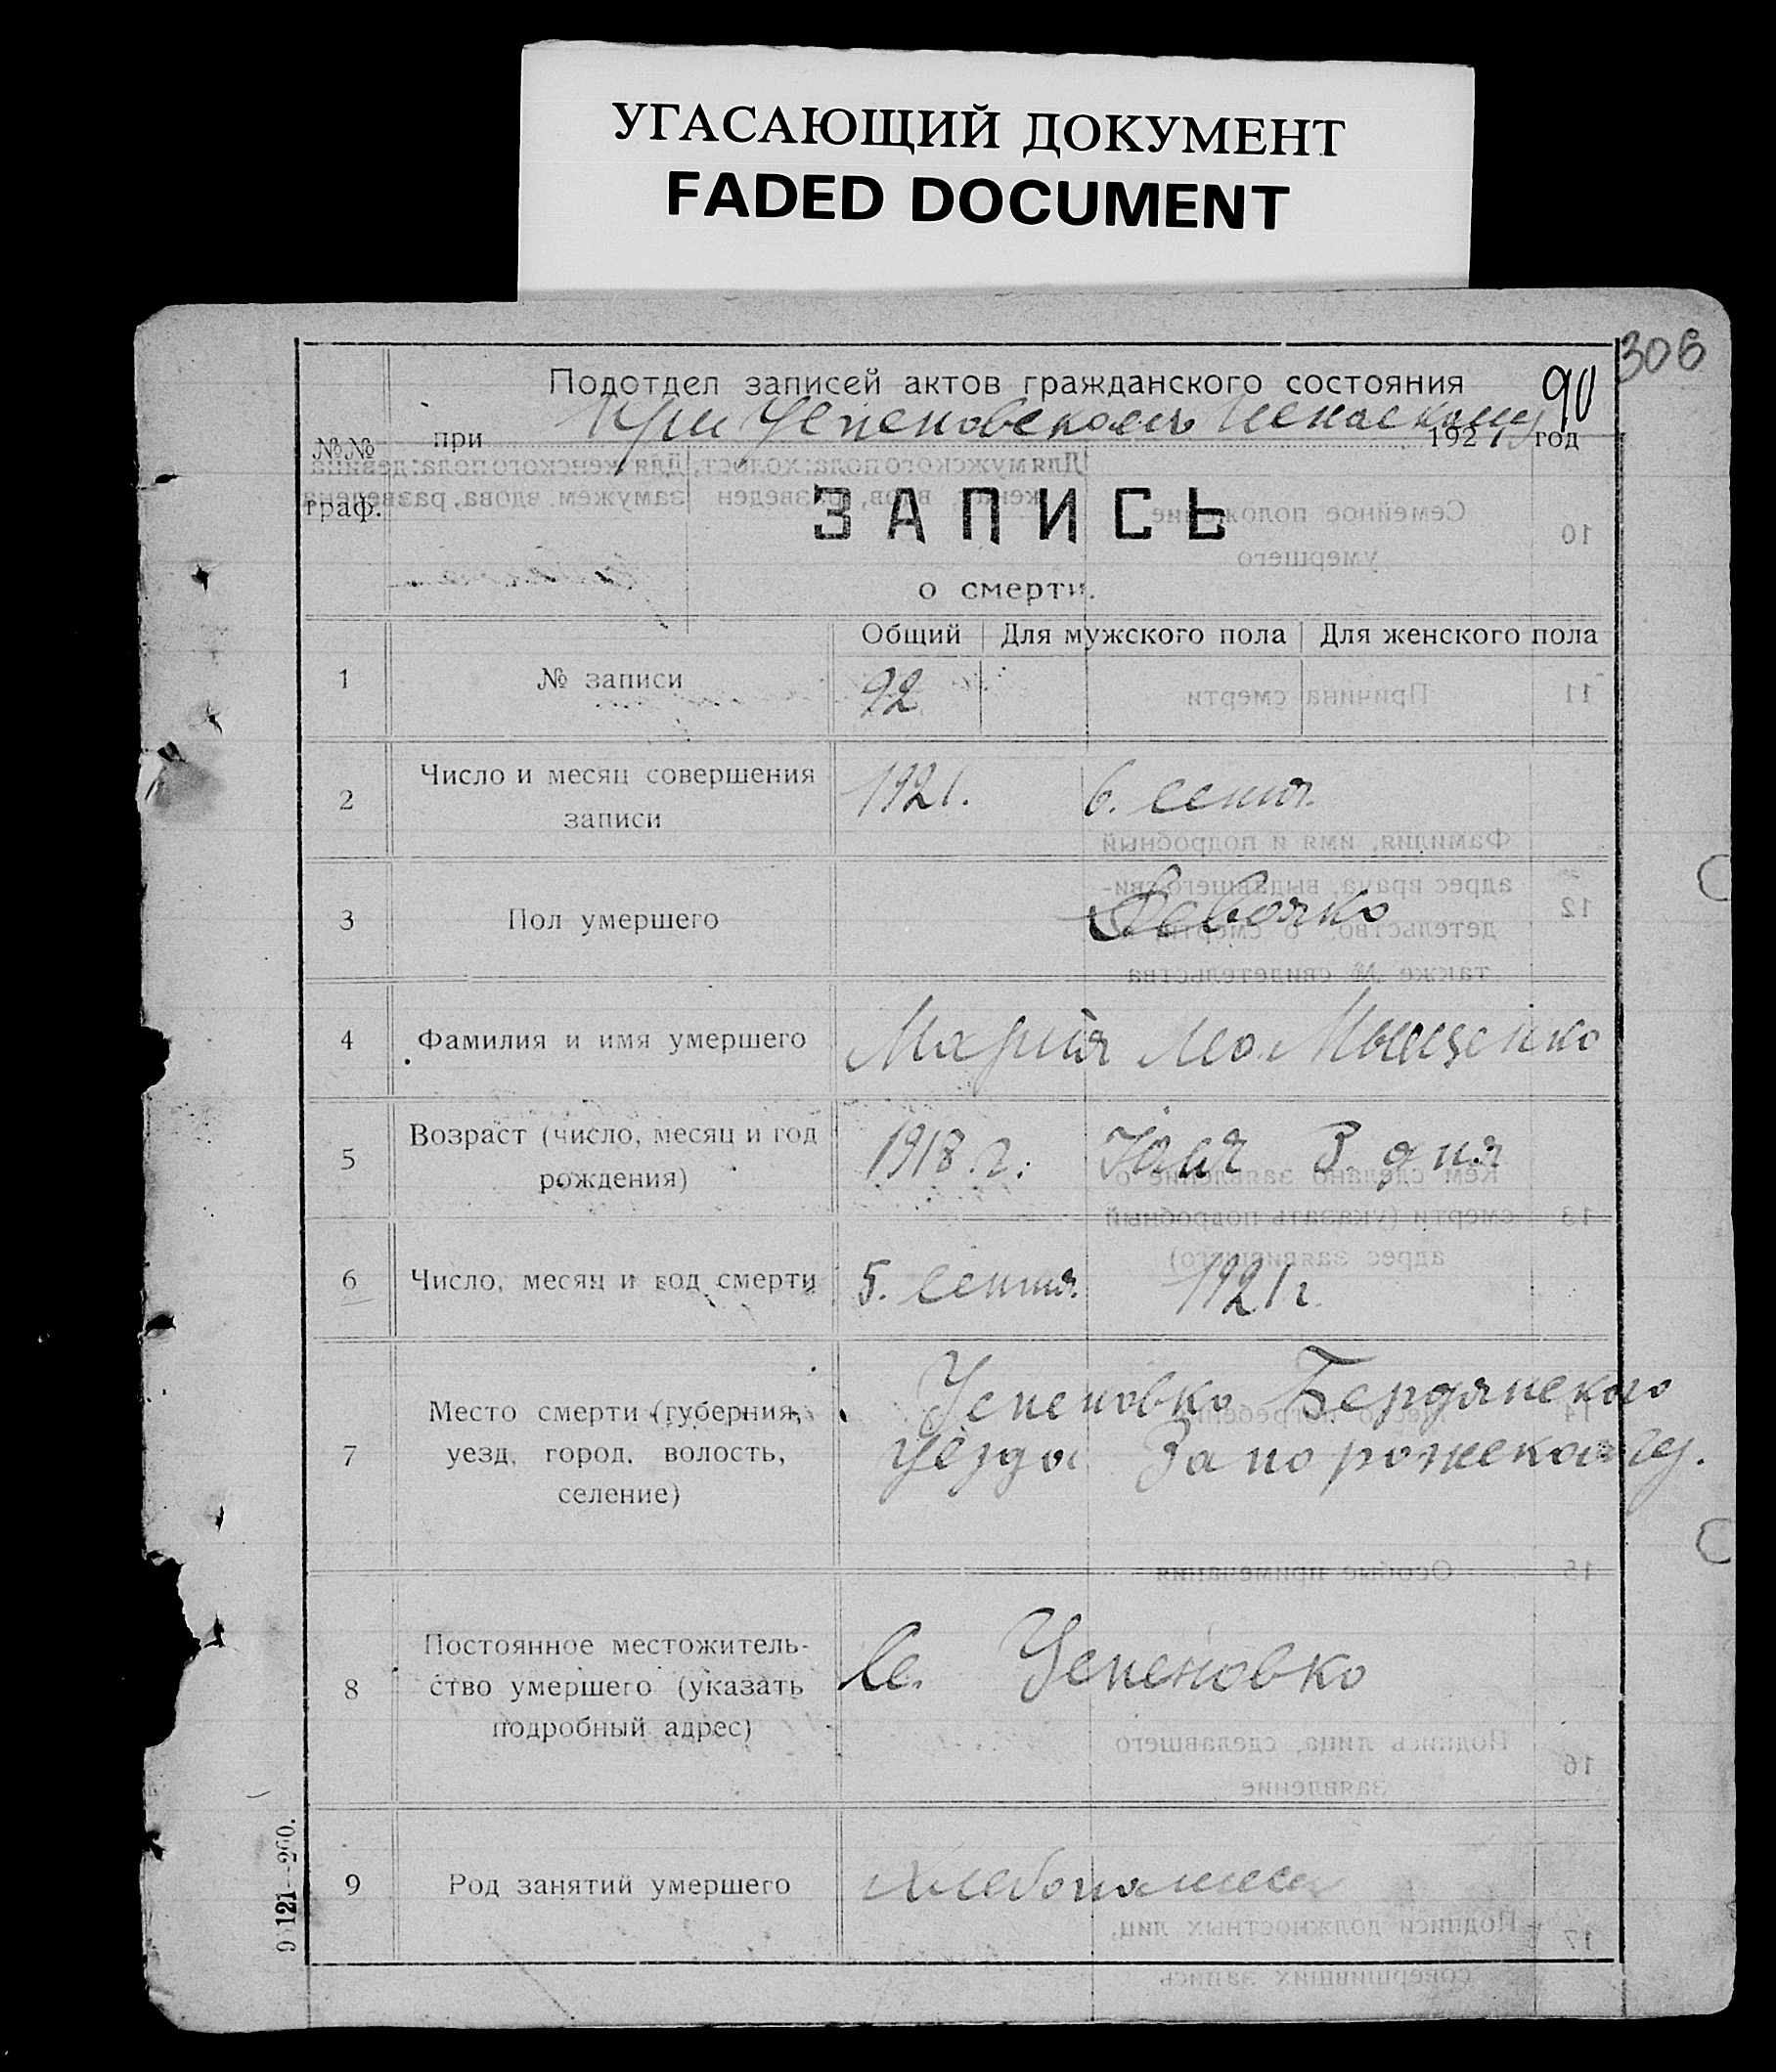 УГАСАЮЩИЙ ДОКУМЕНТ
FADED DOCUMENT
306
Подотдел записей актов гражданского состояния
90
при При Успеновском 1921 год
№№ граф.
ЗАПИСЬ
о смерти.
Общий Для мужского пола Для женского пола
1 № записи 92
2 Число и месяц совершения 1921. 6. сентя.
записи
3 Пол умершего Девочка
4 Фамилия и имя умершего Мария Мыщенко
5 Возраст (число, месяц и год 1918.г. Юля 3 дня
рождения)
6 Число, месяц и год смерти 5. Сентя. 1921 г
7 Место смерти (губерния, Успеновко Бердянского
уезд, город, волость, уезда Запорожской гу.
селение)
8 Постоянное местожитель- Се. Успеновко
ство умершего (указать
подробный адрес)
9 Род занятий умершего